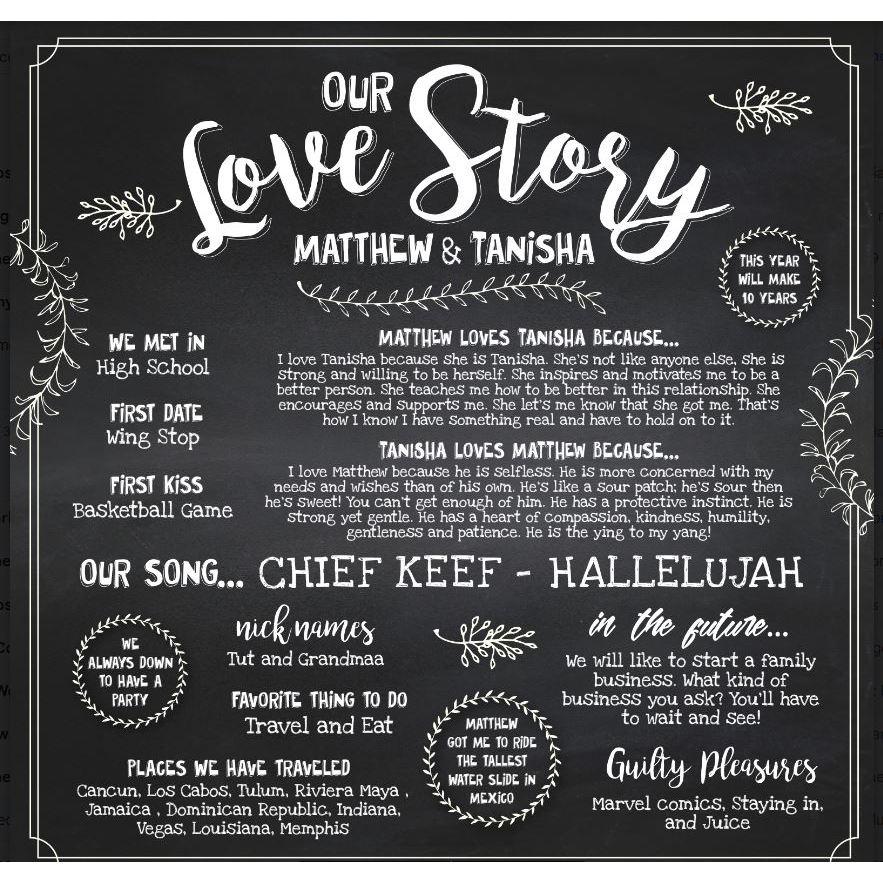 OUR
Love Story
MATTHEW & TANISHA
THIS YEAR
WILL MAKE
10 YEARS
WE MET IN
High School
FIRST DATE
Wing Stop
FIRST KISS
Basketball Game
MATTHEW LOVES TANISHA BECAUSE...
I love Tanisha because she is Tanisha. She's not like anyone else, she is
strong and willing to be herself. She inspires and motivates me to be a
better person. She teaches me how to be better in this relationship. She
encourages and supports me. She let's me know that she got me. That's
how I know I have something real and have to hold on to it.
TANISHA LOVES MATTHEW BECAUSE...
I love Matthew because he is selfless. He is more concerned with my
needs and wishes than of his own. He's like a sour patch; he's sour then
he's sweet! You can't get enough of him. He has a protective instinct. He is
strong yet gentle. He has a heart of compassion, kindness, humility,
gentleness and patience. He is the ying to my yang!
OUR SONG... CHIEF KEEF - HALLELUJAH
WE
ALWAYS DOWN
TO HAVE A
PARTY
nick names
Tut and Grandmaa
FAVORITE THING TO DO
Travel and Eat
PLACES WE HAVE TRAVELED
Cancun, Los Cabos, Tulum, Riviera Maya ,
Jamaica , Dominican Republic, Indiana,
Vegas, Louisiana, Memphis
MATTHEW
GOT ME TO RIDE
THE TALLEST
WATER SLIDE IN
MEXICO
in the future...
We will like to start a family
business. What kind of
business you ask? You'll have
to wait and see!
Guilty Pleasures
Marvel comics, Staying in,
and Juice